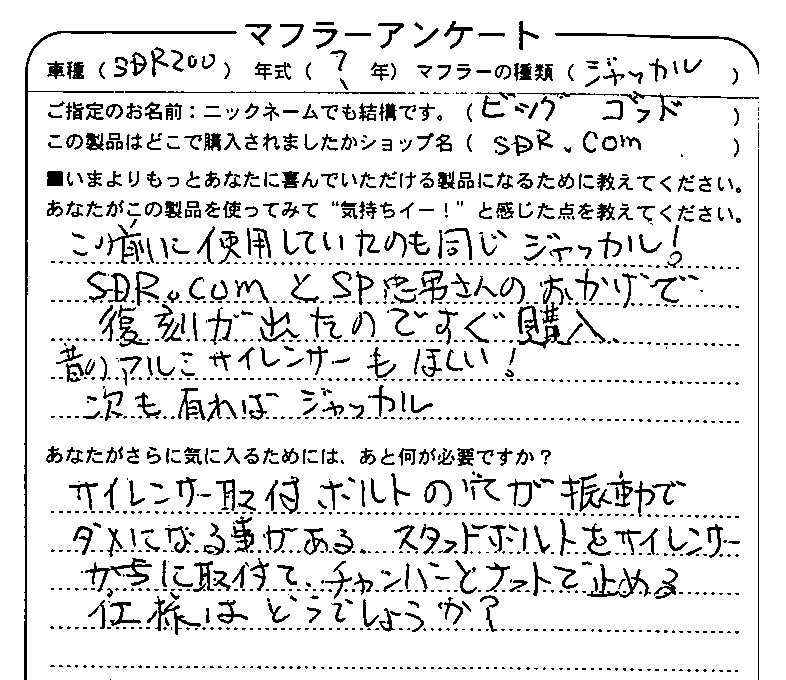 マフラーアンケート
車種(SDR200) 年式(? 年) マフラーの種類(ジャッカル)
ご指定のお名前:ニックネームでも結構です。(ビッグ ゴッド)
この製品はどこで購入されましたかショップ名(SDR.com)
■いまよりもっとあなたに喜んでいただける製品になるために教えてください。
あなたがこの製品を使ってみて“気持ちイー!”と感じた点を教えてください。
この前に使用していたのも同じジャッカル!
SDR.comとSP忠男さんのおかげで
復刻が出たのですぐ購入、
昔のアルミサイレンサーもほしい!
次も有ればジャッカル
あなたがさらに気に入るためには、あと何が必要ですか?
サイレンサー取付ボルトの穴が振動で
ダメになる事がある、スタッドボルトをサイレンサー
がちに取付て、チャンバーとナットで止める
仕様はどうでしょうか?